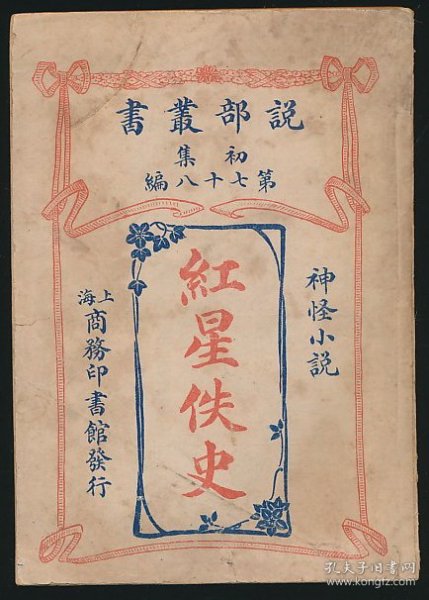 説部叢書
初集
第七十八編
神怪小説
紅星佚史
上海商務印書館發行
孔夫子旧书网
www.kongfz.com